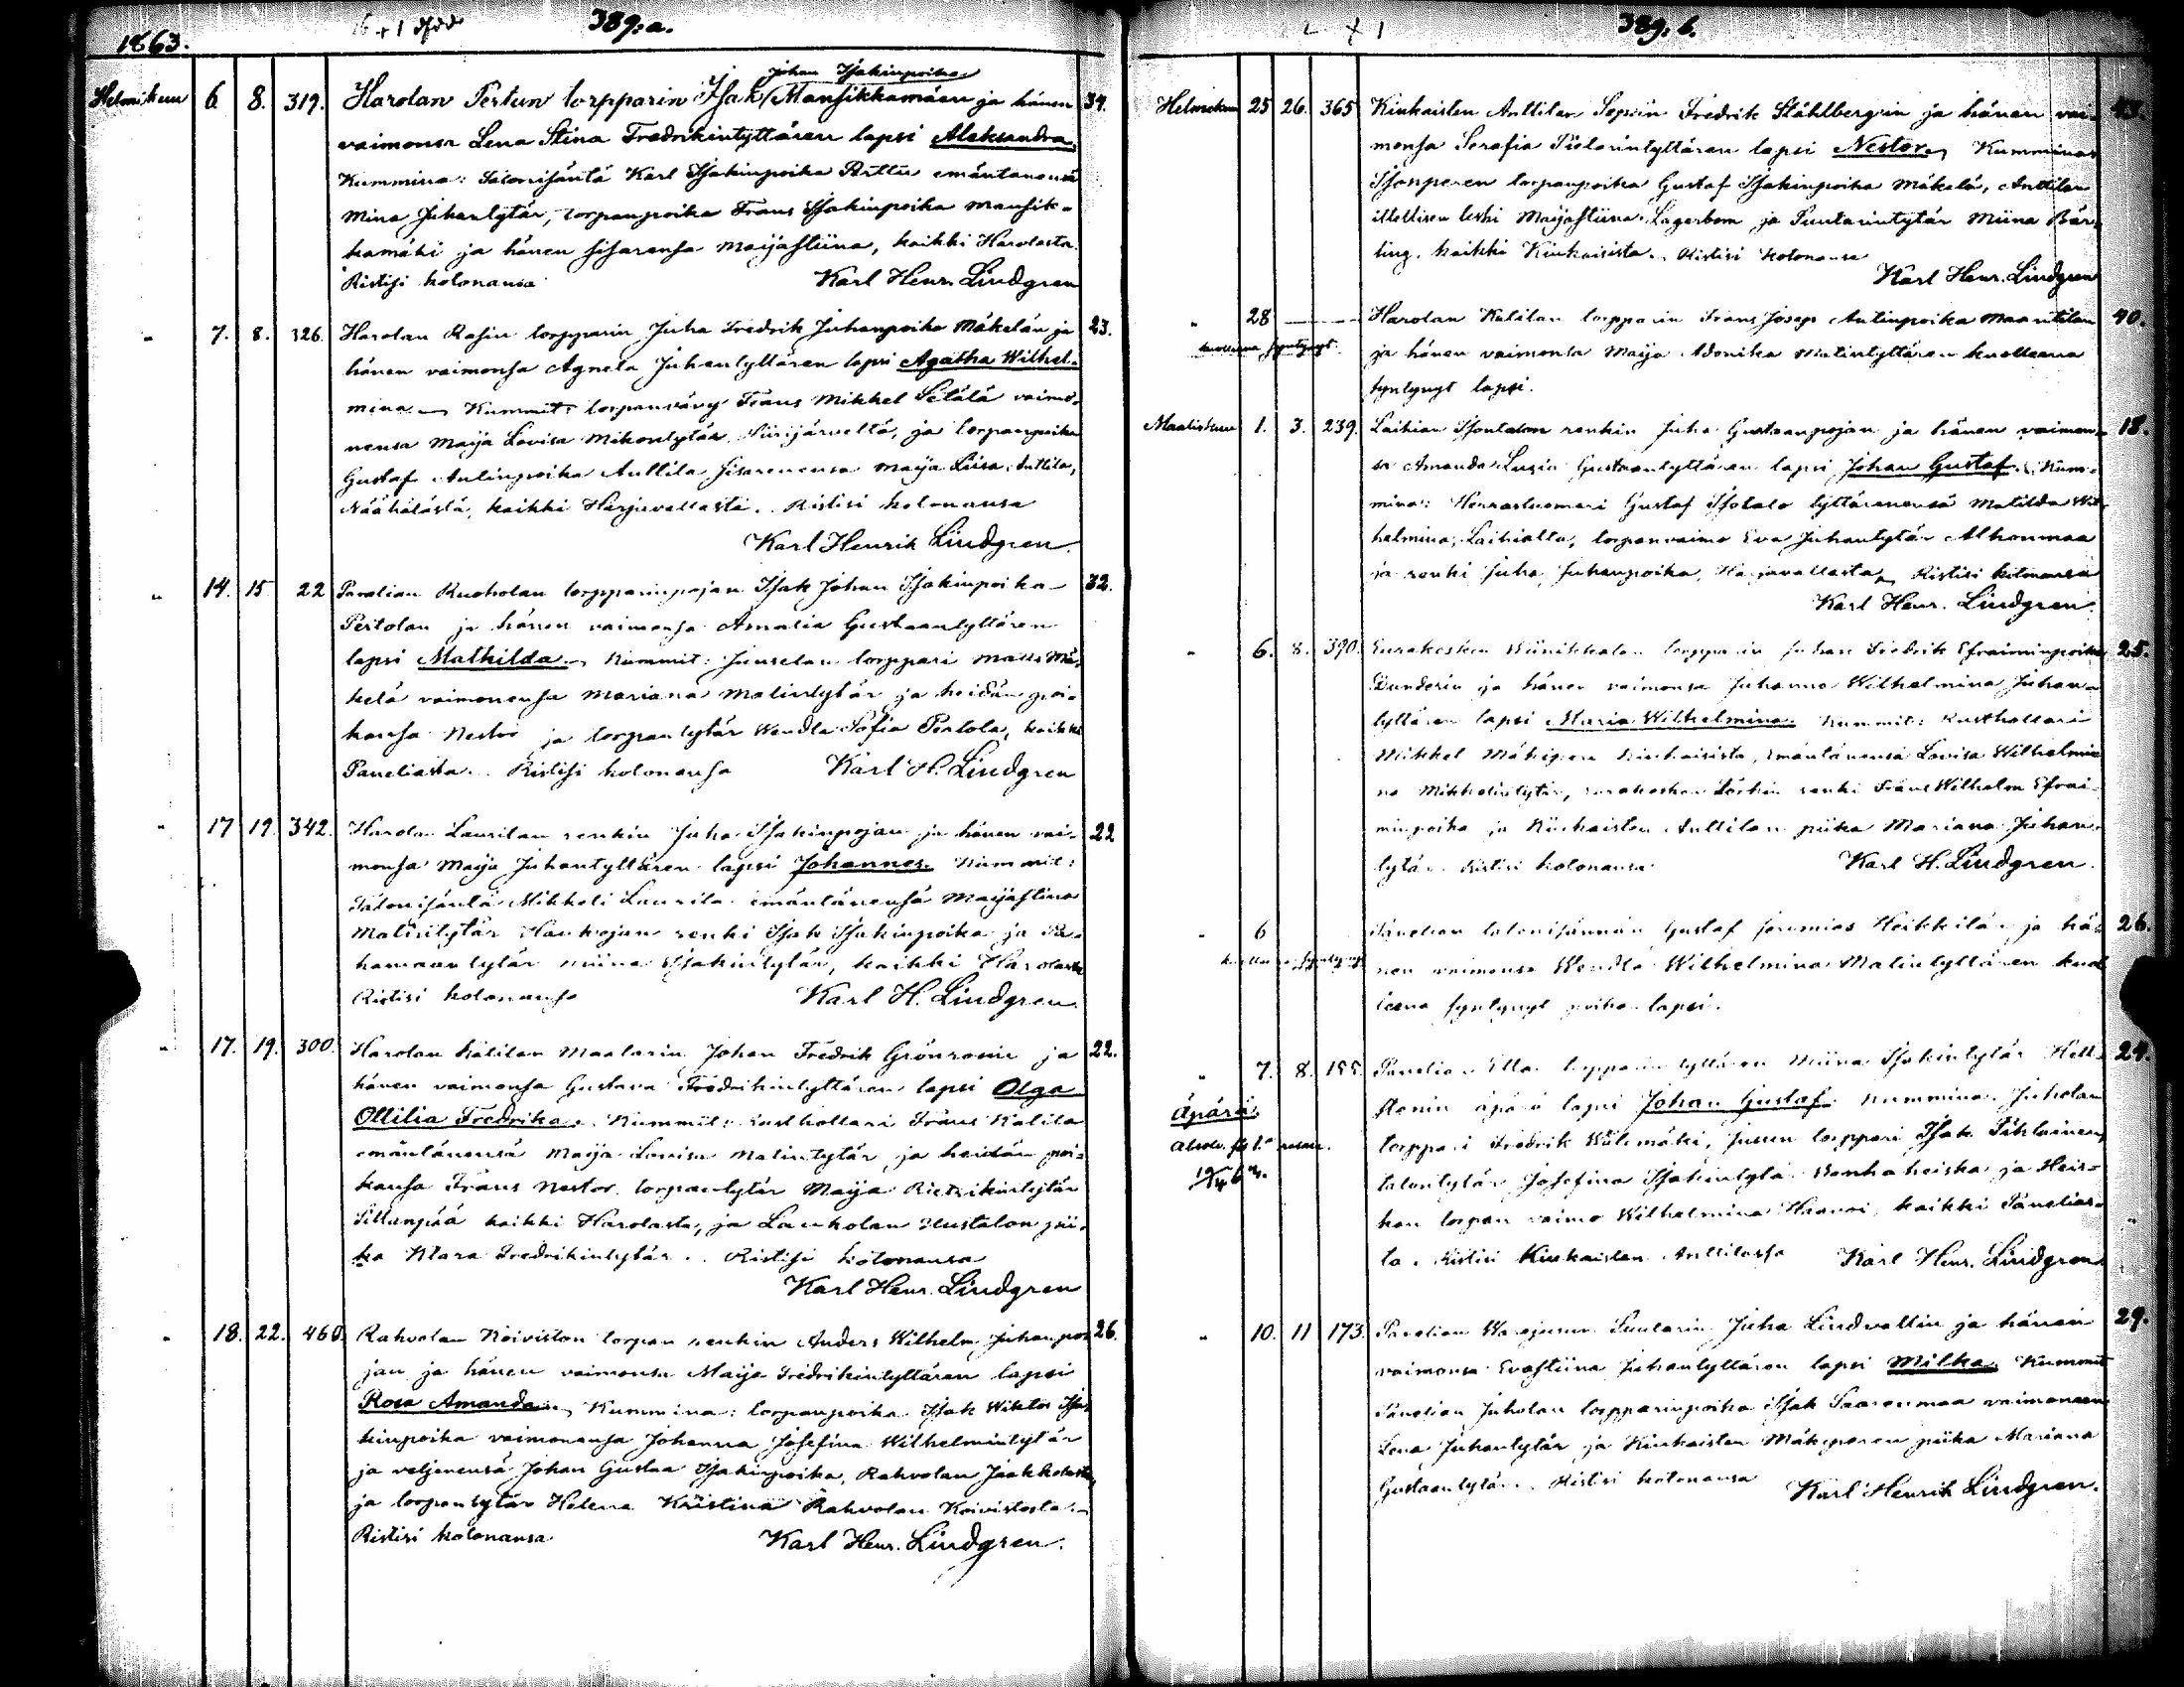 1863. 389:a.
Johan Isakinpoika
Helmikuu 6 8. 319. Harolan Pertun torpparin Isak Mansikkamäen ja hänen 34.
vaimonsa Lena Stina Fredrikintyttären lapsi Aleksandra.
Kummina: Talonisäntä Karl Isakinpoika Perttu emäntänensä
Mina Juhantytär, torpanpoika Frans Isakinpoika Mansik-
kamäki ja hänen sisarensa Maijastiina, kaikki Harolasta.
Ristisi kotonansa Karl Henr. Lindgren
" 7. 8. 326. Harolan Rasin torpparin Juha Fredrik Juhanpoika Mäkelän ja 23.
hänen vaimonsa Agneta Juhantyttären lapsi Agatha Wilhel-
mina. Kummit: torpanvävy Frans Mikkel Setälä vaimo-
nensa Maija Lovisa Mikontytär Siirijärveltä, ja torpanpoika
Gustaf Antinpoika Anttila sisarenensa Maija Liisa Anttila,
kaikki Harjavallasta. Ristisi kotonansa
Karl Henrik Lindgren.
" 14. 15 22 Panelian Ruoholan torpparinpojan Isak Johan Isakinpoika 32.
Pertolan ja hänen vaimonsa Amalia Gustaantyttären
lapsi Mathilda. Kummit: Juuselan torppari Matts Mä-
kelä vaimonensa Mariana Matintytär ja heidän poi-
kansa Nestor ja torpantytär Wendla Sofia Pertola, kaikki
Paneliasta. Ristisi kotonansa Karl H. Lindgren
" 17 19. 342. Harolan Laurilan renkin Juha Isakinpojan ja hänen vai- 22
monsa Maija Juhantyttären lapsi Johannes. Kummit:
Talonisäntä Mikkeli Laurila emäntänensä Maijastina
Matintytär renki Isak Isakinpoika ja
Miina Isakintytär, kaikki Harolasta
Ristisi kotonansa Karl H. Lindgren.
" 17. 19. 300. Harolan Kälilan Maalarin Johan Fredrik Grönroosin ja 22.
hänen vaimonsa Gustava Fredrikintyttären lapsi Olga
Ottilia Fredrika. Kummit: Rusthollari Frans Kalila
emäntänensä Maija Lovisa Matintytär, ja heidän poi-
kansa Frans Nestor torpantytär Maija
Sillanpää kaikki Harolasta, ja Laukolan pii-
ka Klara Fredrikintytär. Ristisi kotonansa
Karl Henr. Lindgren
" 18. 22. 460. Rahvolan Koiviston torpan renkin Anders Wilhelm Juhanpo- 26.
jan ja hänen vaimonsa Maija Fredrikintyttären lapsi
Rosa Amanda. Kummina: torpanpoika Isak Wiktor Isa-
kinpoika vaimonensa Johanna Josefina Wilhelmintytär
ja veljenensä Johan Gustaa Isakinpoika, Rahvolan Jaakkolasta,
ja torpantytär Helena Kristina Rahvolan Koivistosta.
Ristisi kotonansa Karl Henr. Lindgren.
389. b.
Helmikuu 25 26. 365 Kiukaisten Anttilan Sepän Fredrik Ståhlbergin ja hänen vai-
monsa Serafia lapsi Nestor. Kummina
Isonperen torpanpoika Gustaf Isakinpoika Mäkelä, Anttilan
itellisen leski Maijastiina Lagerbom ja Puutarintytär Miina Bär-
ling, kaikki Kiukaisista. Ristisi kotonansa
Karl Henr. Lindgren
" 28 Harolan Kalilan torpparin Frans Josep Antinpoika Maantilan 40.
kuolleena syntynyt. ja hänen vaimonsa Maija Matintyttären kuolleena
syntynyt lapsi.
Maaliskuu 1. 3. 239. Laihian Isontalon renkin Juha Gustaanpojan ja hänen vaimon- 18.
sa Amanda Gustaantyttären lapsi Johan Gustaf. Kum-
mina: Herrastuomari Gustaf Isotalo tyttärenensä Matilda Wil-
helmina, Laihialta, torpanvaimo Eva Juhantytär Alhonmaa
ja renki Juha Juhanpoika, Harjavallasta. Ristisi kotonansa
Karl Henr. Lindgren
" 6. 8. 390. Eurakosken torpparin Juhan Fredrik Efraiminpoika 25.
Dunderin ja hänen vaimonsa Juhanna Wilhelmina Juhan-
tyttären lapsi Maria Wilhelmina. Kummit: Rusthollari
Mikkel Kiukaisista, emäntänensä Lovisa Wilhelmii-
na renki Frans Wilhelm Efrai-
minpoika ja Kiukaisten Anttilan piika Mariana Juhan-
tytär. Ristisi kotonansa Karl H. Lindgren.
" 6 Panelian talonisännän Gustaf Jeremias Heikkilän ja hä- 26.
kuolleena syntynyt nen vaimonsa Wendla Wilhelmina Matintyttären kuol-
leena syntynyt poika lapsi.
" 7. 8. 155. Panelian torpparin tyttären Miina Isakintytär Hell- 24.
Äpärä. stenin äpärä lapsi Johan Gustaf. Kummina: Juholan
torppari Fredrik Wälimäki, torppari Isak
talontytär Josefina Isakintytär ja Heis-
kan torpan vaimo Wilhelmina kaikki Panelias-
ta. Ristisi Kiukaisten Anttilassa Karl Henr. Lindgren
" 10. 11 173. Panelian Puutarin Juha Lindvallin ja hänen 29.
vaimonsa Evastiina Juhantyttären lapsi Milka. Kummit
Panelian Juholan torpparinpoika Isak Saarenmaa vaimoneen
Lena Juhantytär, ja Kiukaisten piika Mariana
Gustaantytär. Ristisi kotonansa Karl Henrik Lindgren.